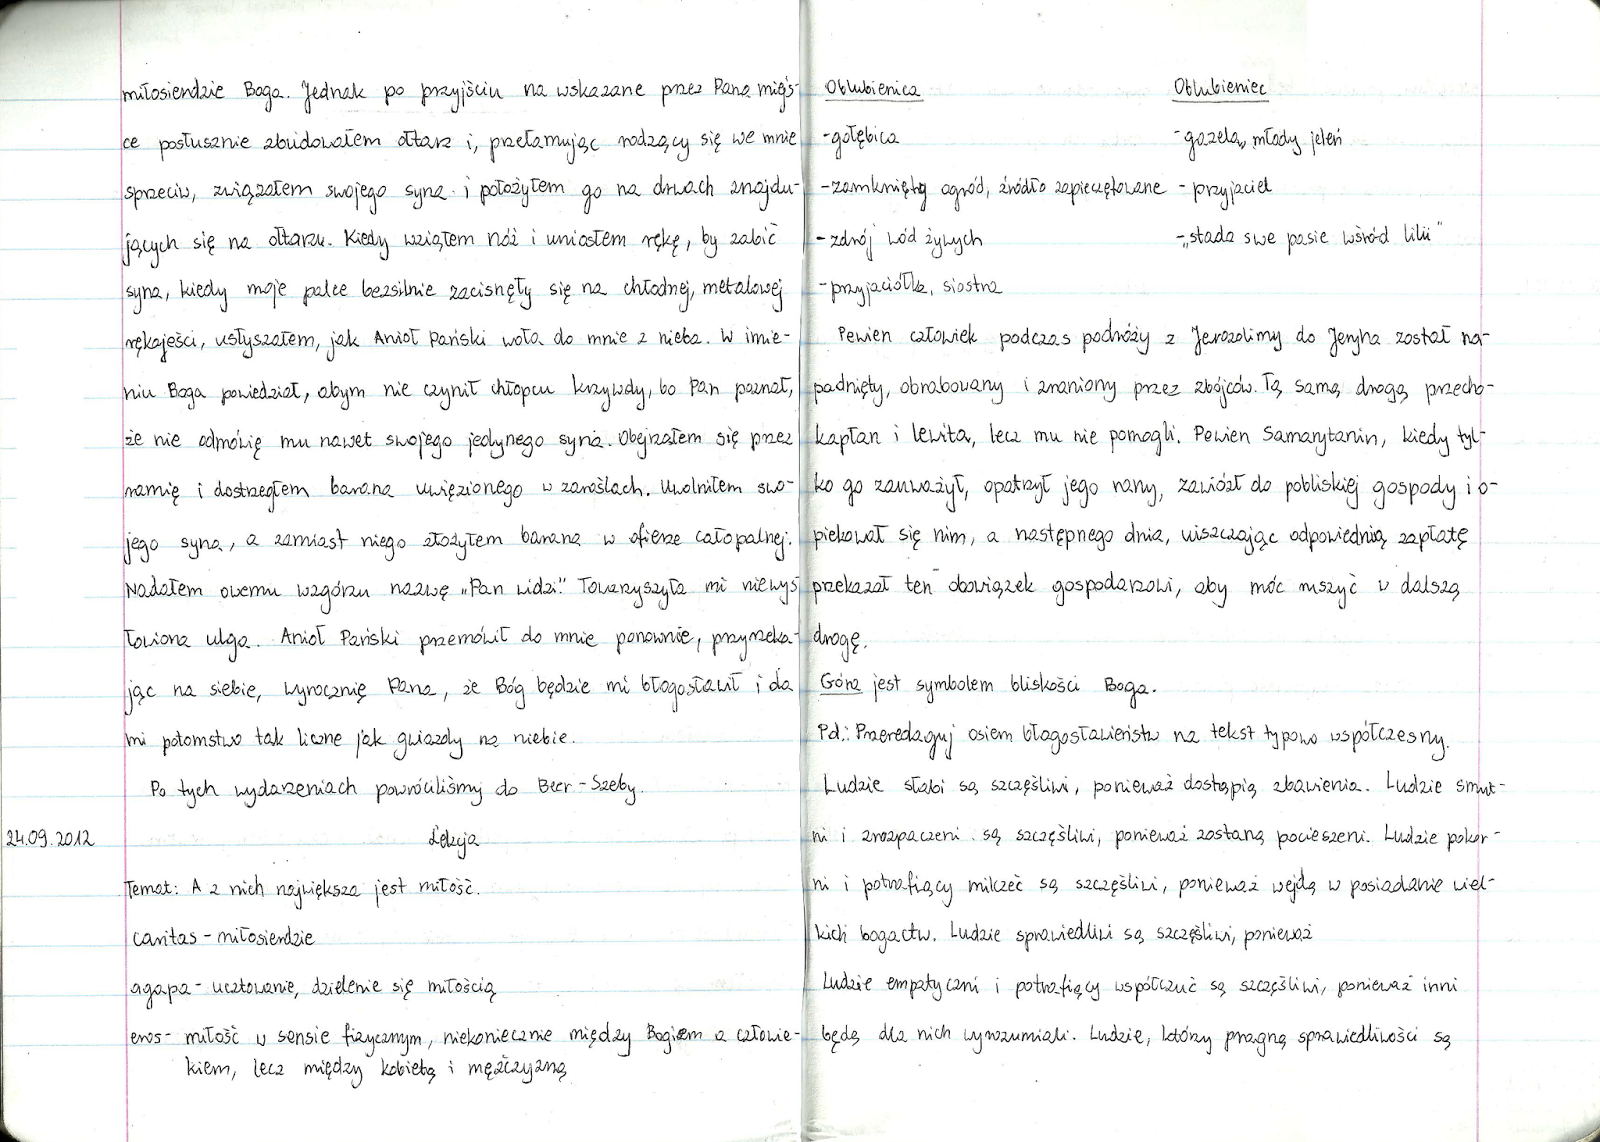 miłosierdzie Boga. Jednak po przyjściu na wskazane przez Pana miejs-
ce posłusznie zbudowałem ołtarz i, przełamując rodzący się we mnie
sprzeciw, związałem swojego syna i położyłem go na drwach znajdu-
jących się na ołtarzu. Kiedy wziąłem nóż i uniosłem rękę, by zabić
syna, kiedy moje palce bezsilnie zacisnęły się na chłodnej, metalowej
rękojeści, usłyszałem, jak Anioł Pański woła do mnie z nieba. W imie-
niu Boga powiedział, abym nie czynił chłopcu krzywdy, bo Pan poznał,
że nie odmówię mu nawet swojego jedynego syna. Obejrzałem się przez
ramię i dostrzegłem barana uwięzionego w zaroślach. Uwolniłem swo-
jego syna, a zamiast niego złożyłem barana w ofierze całopalnej.
Nadałem owemu wzgórzu nazwę „Pan widzi". Towarzyszyła mi niewys
łowiona ulga. Anioł Pański przemówił do mnie ponownie, przyrzeka-
jąc na siebie, wyrocznię Pana, że Bóg będzie mi błogosławił i da
mi potomstwo tak liczne jak gwiazdy na niebie.
Po tych wydarzeniach powróciliśmy do Beer-Szeby.
24.09.2012 Lekcja
Temat: A z nich największa jest miłość.
caritas - miłosierdzie
agapa - ucztowanie, dzielenie się miłością
eros - miłość w sensie fizycznym, niekoniecznie między Bogiem a człowie-
kiem, lecz między kobietą i mężczyzną
Oblubienica Oblubieniec
- gołębica - gazela, młody jeleń
- zamknięty ogród, źródło zapieczętowane - przyjaciel
- zdrój wód żywych - „stada swe pasie wśród lilii"
- przyjaciółka, siostra
Pewien człowiek podczas podróży z Jerozolimy do Jerycha został na-
padnięty, obrabowany i zraniony przez zbójców. Tą samą drogą przecho-
kapłan i lewita, lecz mu nie pomogli. Pewien Samarytanin, kiedy tyl-
ko go zauważył, opatrzył jego rany, zawiózł do pobliskiej gospody i o-
piekował się nim, a następnego dnia, uiszczając odpowiednią zapłatę
przekazał ten obowiązek gospodarzowi, aby móc ruszyć w dalszą
drogę.
Góra jest symbolem bliskości Boga.
Pd.: Przeredaguj osiem błogosławieństw na tekst typowo współczesny.
Ludzie słabi są szczęśliwi, ponieważ dostąpią zbawienia. Ludzie smut-
ni i zrozpaczeni są szczęśliwi, ponieważ zostaną pocieszeni. Ludzie pokor-
ni i potrafiący milczeć są szczęśliwi, ponieważ wejdą w posiadanie wiel-
kich bogactw. Ludzie sprawiedliwi są szczęśliwi, ponieważ
Ludzie empatyczni i potrafiący współczuć są szczęśliwi, ponieważ inni
będą dla nich wyrozumiali. Ludzie, którzy pragną sprawiedliwości są